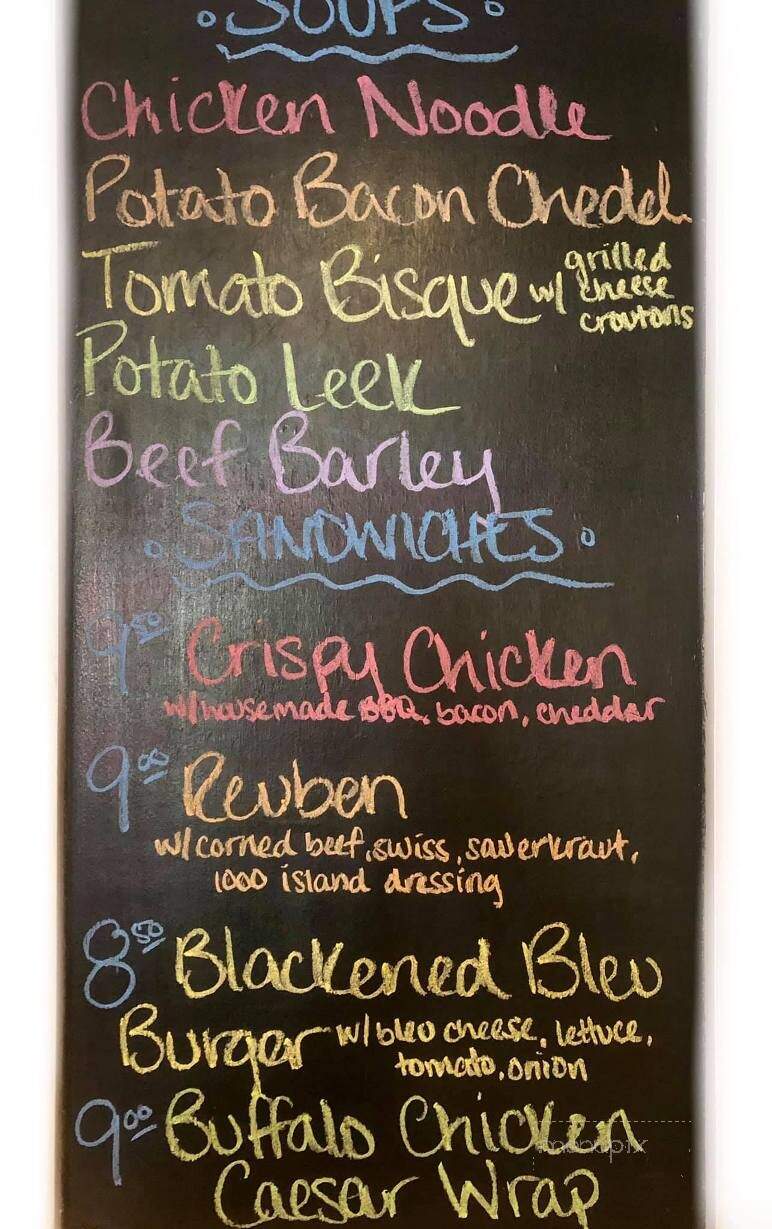 SOUPS
Chicken Noodle
Potato Bacon Chedd.
Tomato Bisque w/ grilled cheese croutons
Potato Leek
Beef Barley
SANDWICHES
9.50 Crispy Chicken
w/housemade BBQ, bacon, cheddar
9.00 Reuben
w/corned beef, swiss, sauerkraut,
1000 island dressing
8.50 Blackened Bleu
Burger w/bleu cheese, lettuce,
tomato, onion
9.00 Buffalo Chicken
menupix
Caesar Wrap